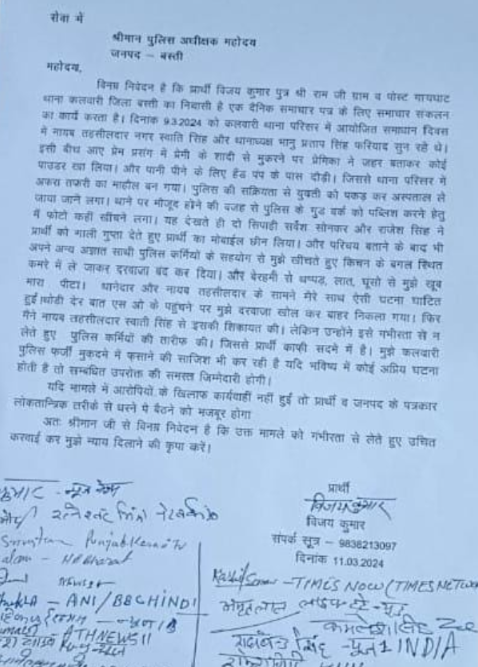 सेवा में
श्रीमान पुलिस अधीक्षक महोदय
जनपद – बस्ती
महोदय,
विनम्र निवेदन है कि प्रार्थी विजय कुमार पुत्र श्री राम जी ग्राम व पोस्ट गायघाट
थाना कलवारी जिला बस्ती का निवासी है एक दैनिक समाचार पत्र के लिए समाचार संकलन
का कार्य करता है। दिनांक 9.3.2024 को कलवारी थाना परिसर में आयोजित समाधान दिवस
में नायब तहसीलदार नगर स्वाति सिंह और थानाध्यक्ष भानु प्रताप सिंह फरियाद सुन रहे थे।
इसी बीच आए प्रेम प्रसंग में प्रेमी के शादी से मुकरने पर प्रेमिका ने जहर बताकर कोई
पाउडर खा लिया। और पानी पीने के लिए हैंड पंप के पास दौड़ी। जिससे थाना परिसर में
अफरा तफरी का माहौल बन गया। पुलिस की सक्रियता से युवती को पकड़ कर अस्पताल ले
जाया जाने लगा। थाने पर मौजूद होने की वजह से पुलिस के गुड वर्क को पब्लिश करने हेतु
में फोटो कहीं खींचने लगा। यह देखते ही दो सिपाही सर्वेश सोनकर और राजेश सिंह ने
प्रार्थी को गाली गुप्ता देते हुए प्रार्थी का मोबाईल छीन लिया। और परिचय बताने के बाद भी
अपने अन्य अज्ञात साथी पुलिस कर्मियों के सहयोग से मुझे खींचते हुए किचन के बगल स्थित
कमरे में ले जाकर दरवाजा बंद कर दिया। और बेरहमी से थप्पड़, लात, घूसो से मुझे खूब
मारा पीटा। थानेदार और नायब तहसीलदार के सामने मेरे साथ ऐसी घटना घाटित
हुई।थोडी देर बात एस ओ के पहुंचने पर मुझे दरवाजा खोल कर बाहर निकला गया। फिर
मैंने नायब तहसीलदार स्वाती सिंह से इसकी शिकायत की। लेकिन उन्होंने इसे गंभीरता से न
लेते हुए पुलिस कर्मियों की तारीफ की। जिससे प्रार्थी काफी सदमे में है। मुझे कलवारी
पुलिस फर्जी मुकदमे में फसाने की साजिश भी कर रही है यदि भविष्य में कोई अप्रिय घटना
होती है तो सम्बधित उपरोक्त की समस्त जिम्मेदारी होगी।
यदि मामले में आरोपियों के खिलाफ कार्यवाही नहीं हुई तो प्रार्थी व जनपद के पत्रकार
लोकतान्त्रिक तरीके से धरने पे बैठने को मजबूर होगा
अतः श्रीमान जी से विनम्र निवेदन है कि उक्त मामले को गंभीरता से लेते हुए उचित
करवाई कर मुझे न्याय दिलाने की कृपा करें।
प्रार्थी
विजय कुमार
विजय कुमार
संपर्क सूत्र – 9838213097
दिनांक 11.03.2024
Punjab Kesari tv
ANI/BBCHINDI
TIMES NOW (TIMES NETWORK
अमृतलाल
कमलेश सिंह
सिंह
INDIA